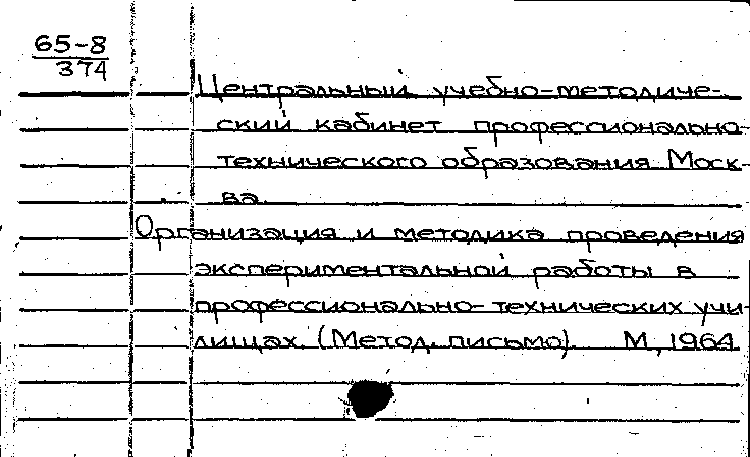 65-8
374
Центральный учебно-методиче-
ский кабинет профессионально-
технического образования Моск-
ва.
Организация и методика проведения
экспериментальной работы в
профессионально-технических учи-
лищах. (Метод. письмо). М, 1964